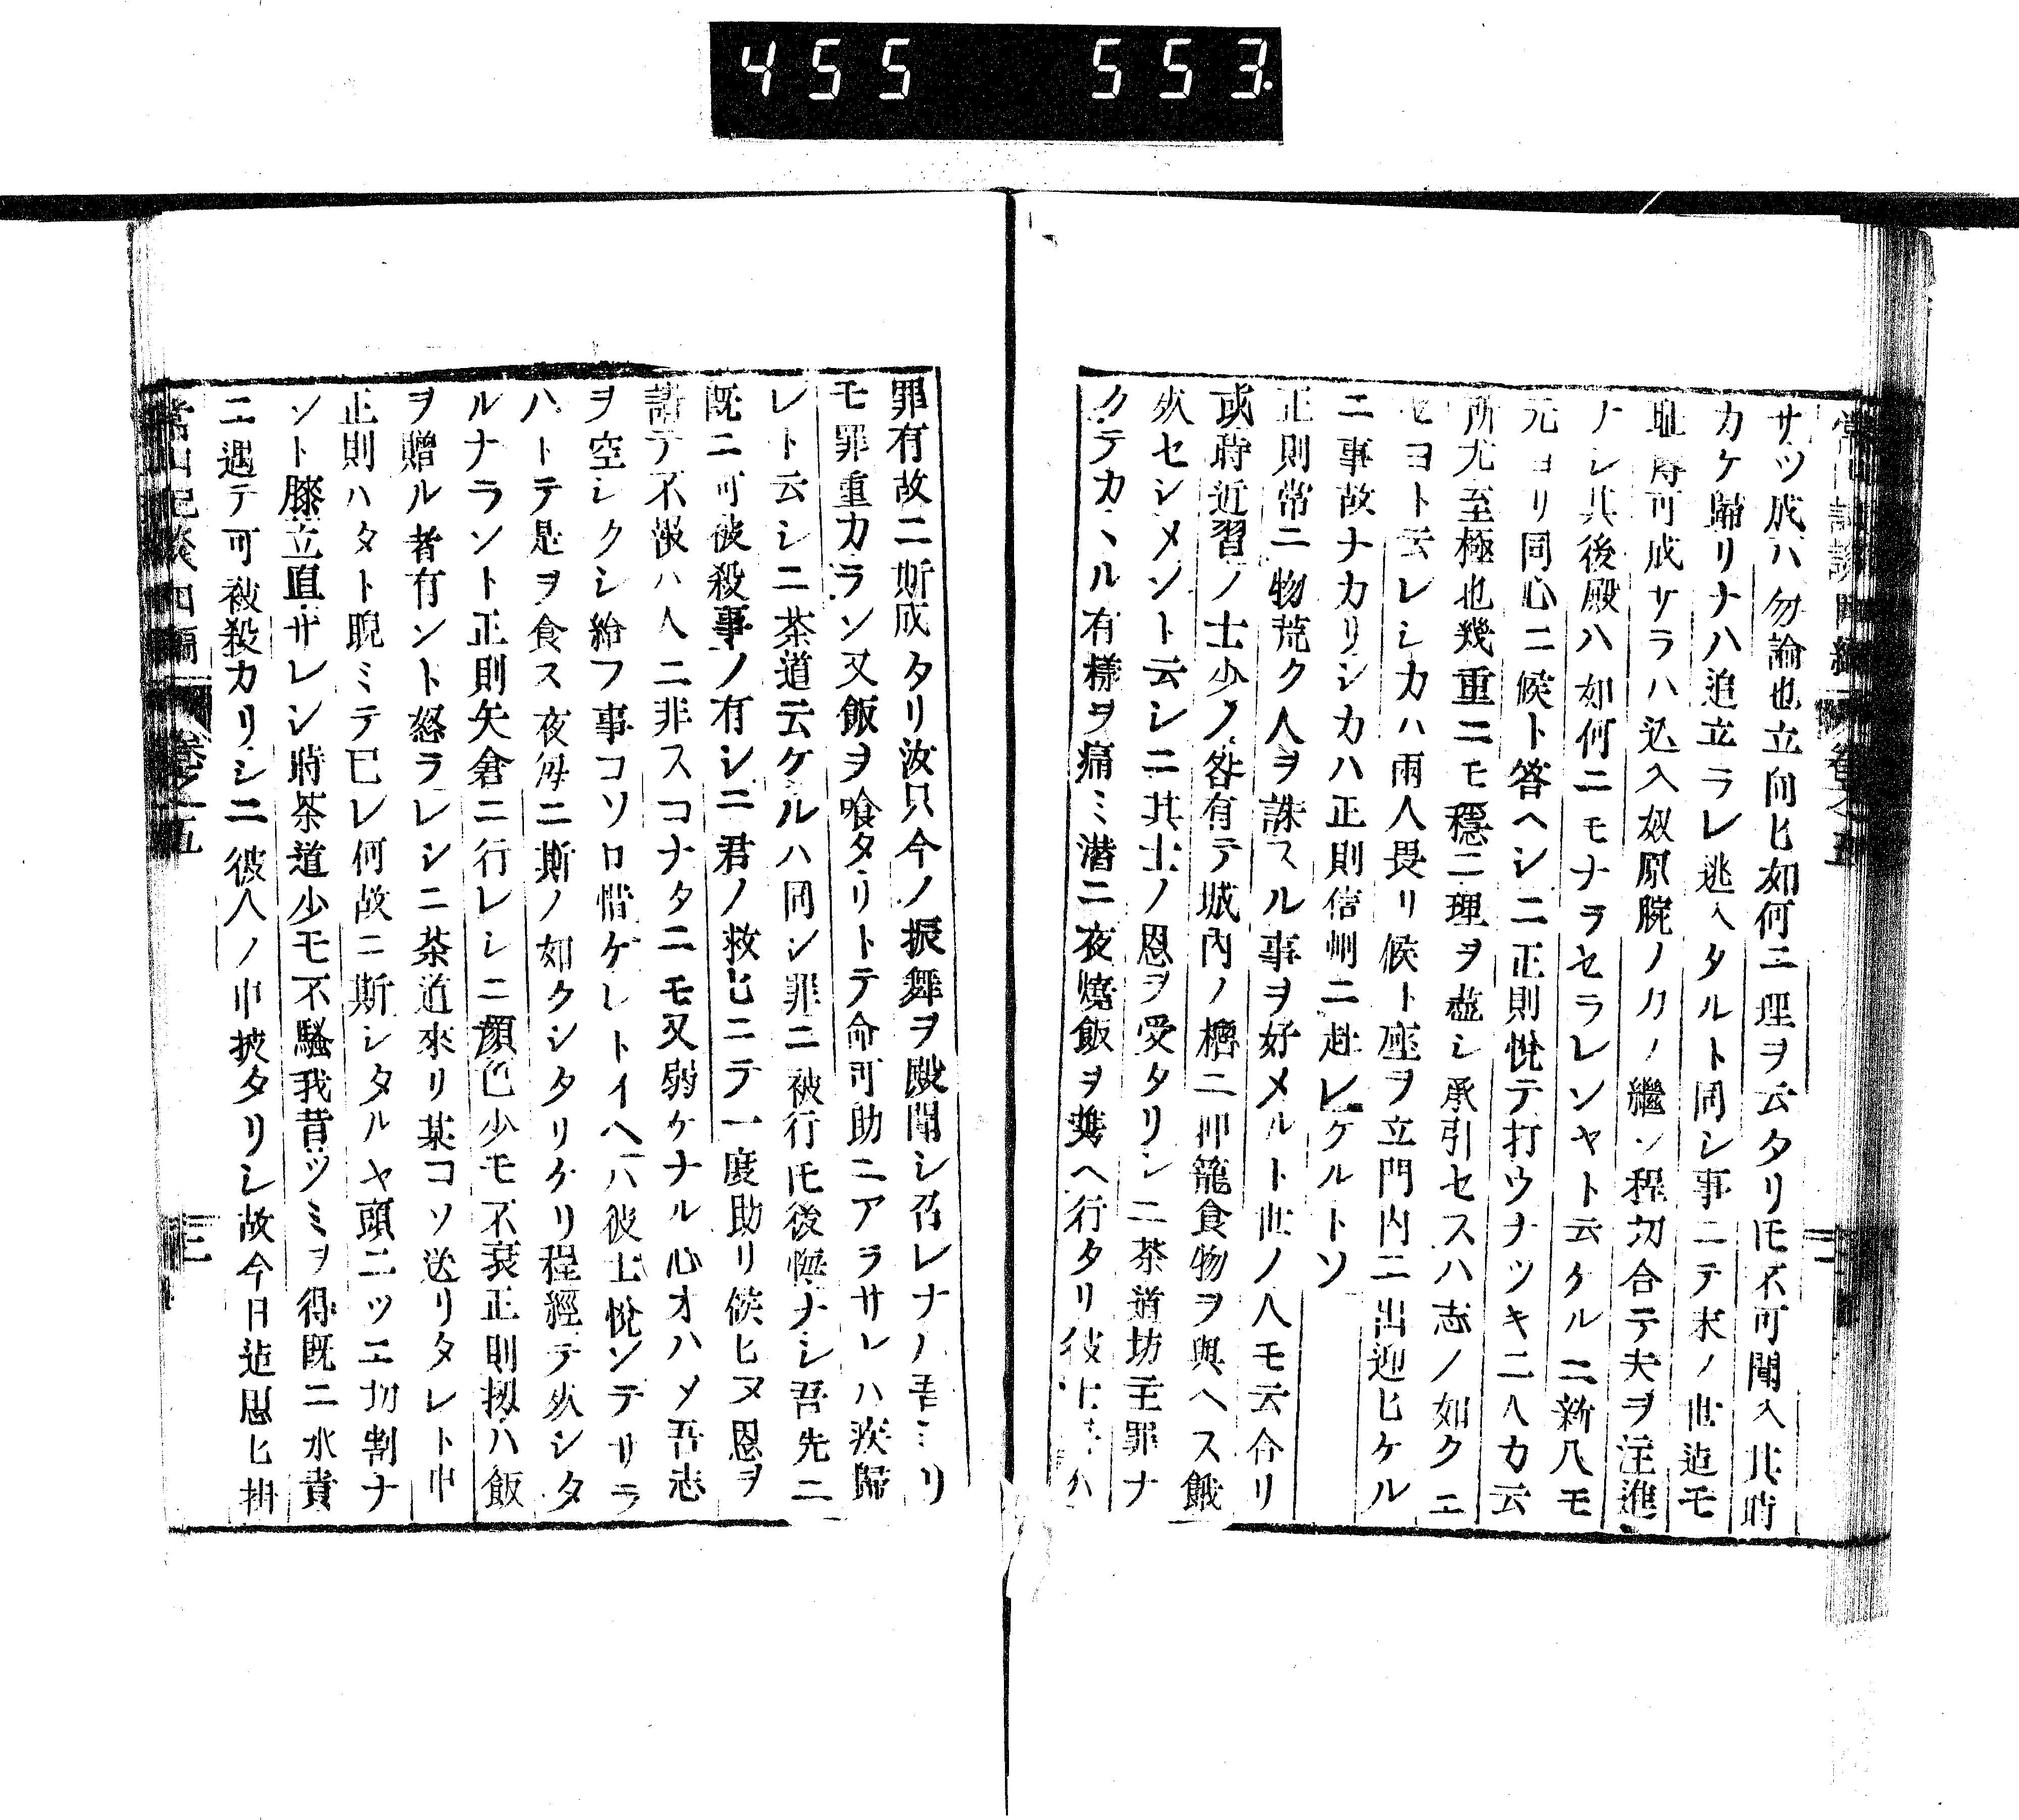 455 553.
サツ成ハ勿論也立向ヒ如何ニ理ヲ云タリ𪜈不可聞入其時
カケ歸リナハ追立ラレ逃入タルト同シ事ニテ末ノ世迠モ
耻辱可成サラハ込入奴原腕ノ力ノ繼ン程切合テ夫ヲ注進
ナレ其後殿ハ如何ニモナラセラレンヤト云ケルニ新八モ
元ヨリ同心ニ候ト答ヘシニ正則悦テ打ウナツキ二人カ云
所尤至極也幾重ニモ穩ニ理ヲ盡シ承引セスハ志ノ如クエ
セヨト云レシカハ兩人畏リ候ト座ヲ立門内ニ出迎ヒケル
ニ事故ナカリシカハ正則信州ニ赴レケルトソ
正則常ニ物荒ク人ヲ誅スル事ヲ好メルト世ノ人モ云合リ
或時近習ノ士少ノ咎有テ城內ノ櫓ニ押籠食物ヲ與ヘス餓
死セシメント云シニ其士ノ恩ヲ受タリシニ茶道坊主罪ナ
クテカヽル有樣ヲ痛ミ潜ニ夜燒飯ヲ携ヘ行タリ彼士
罪有故ニ斯成タリ汝只今ノ振舞ヲ殿聞シ召レナハ吾ヨリ
モ罪重カラン又飯ヲ喰タリトテ命可助ニアラサレハ疾歸
レト云シニ茶道云ケルハ同シ罪ニ被行𪜈後悔ナシ吾先ニ
既ニ可被殺事ノ有シニ君ノ救ヒニテ一度助リ候ヒヌ恩ヲ
請テ不報ハ人ニ非スコナタニモ又弱ケナル心オハメ吾志
ヲ空シクシ給フ事コソロ惜ケレトイヘハ彼士悅ンテサラ
ハトテ是ヲ食ス夜每ニ斯ノ如クシタリケリ程經テ死シタ
ルナラント正則矢倉ニ行レシニ顔色少モ不衰正則扨ハ飯
ヲ贈ル者有ント怒ラレシニ茶道來リ某コソ送リタレト申
正則ハタト睨ミテ巳レ何故ニ斯シタルヤ頭二ツニ切割ナ
ント膝立直サレシ時茶道少モ不騒我昔ツミヲ得既ニ水責
ニ遇テ可被殺カリシニ彼人ノ申披タリシ故今日迠思ヒ掛
常山紀談四編 卷之五 三